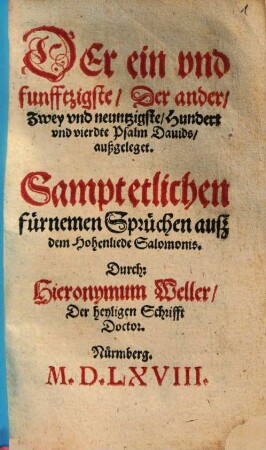 1
DEr ein vnd
funfftzigste/ Der ander/
Zwey vnd neuntzigste/ Hundert
vnd vierdte Psalm Dauids/
außgeleget.
Sampt etlichen
fürnemen Sprüchen auß
dem Hohenliede Salomonis.
Durch:
Hieronymum Weller/
Der heyligen Schrifft
Doctor.
Nürmberg.
M. D. LXVIII.